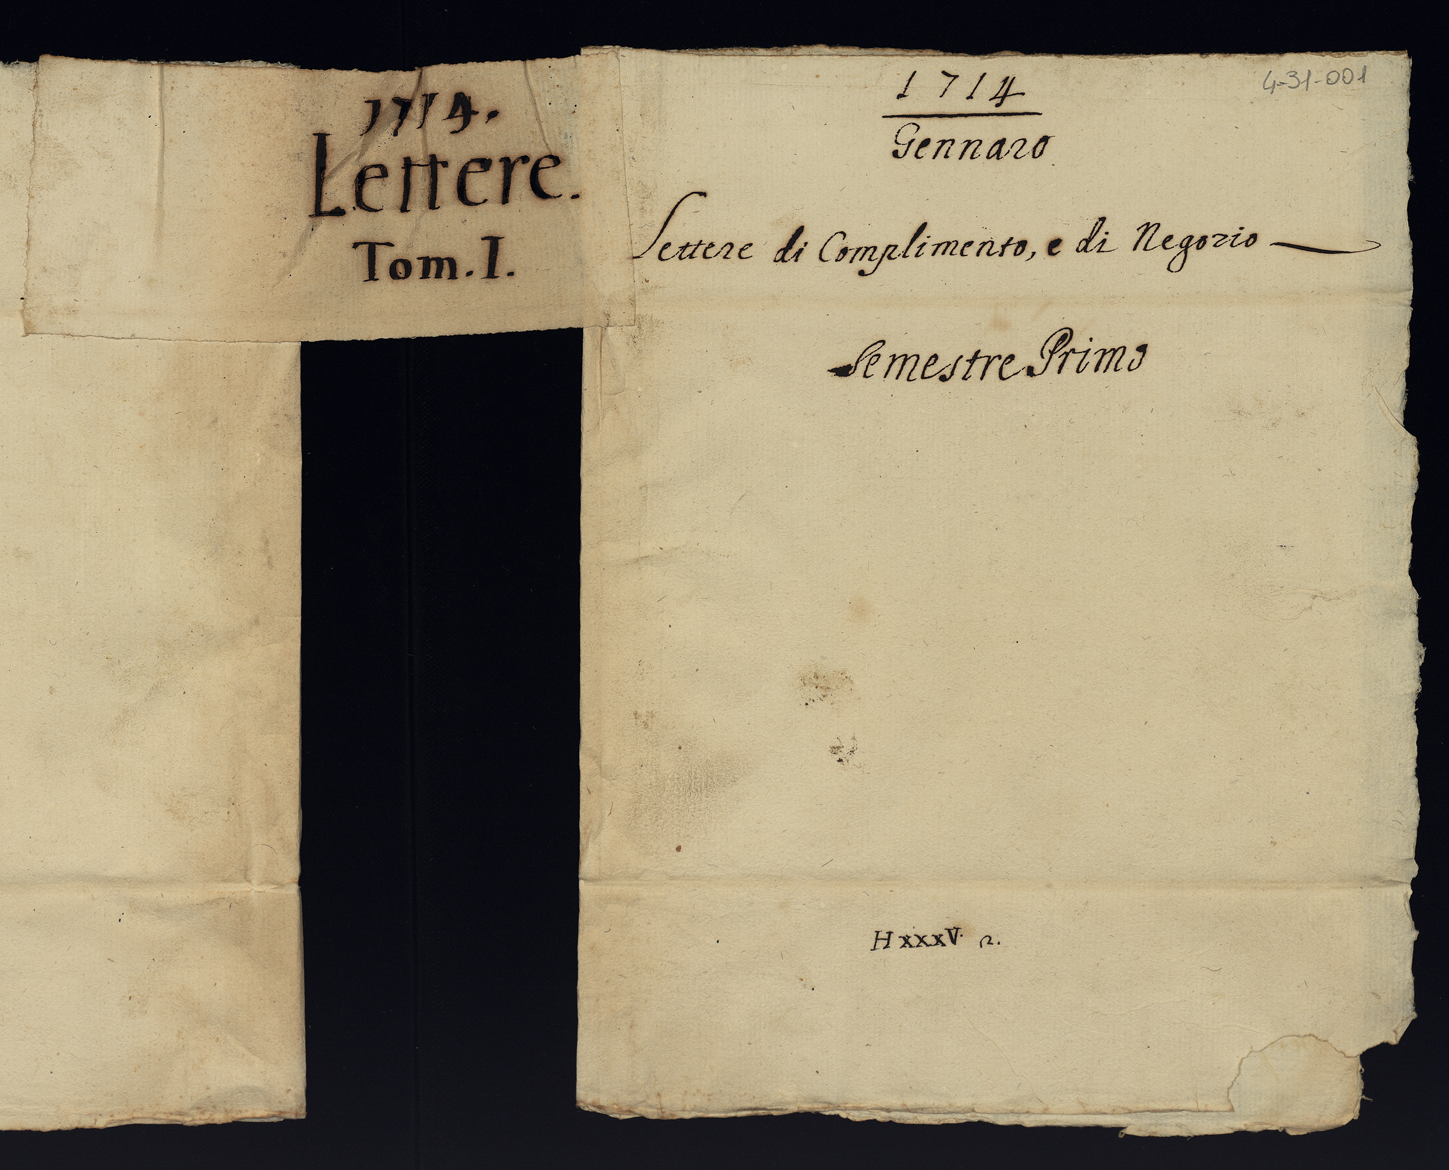 1714.
Lettere.
Tom. I.
4-31-001
1714
Gennaro
Lettere di Complimento, e di Negozio
Semestre Primo
H xxxV. 2.